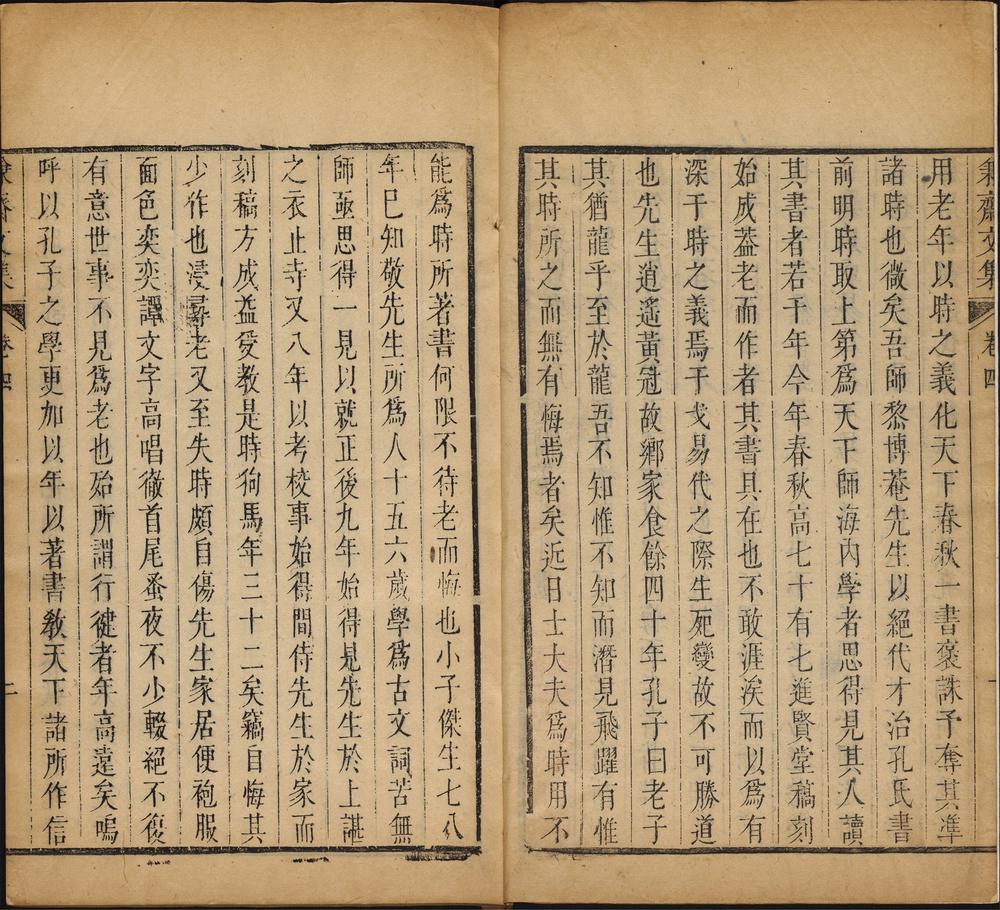 兼齋文集 卷四
用老年以時之義化天下春秋一書褒誅予奪其準
諸時也微矣吾師黎博菴先生以絕代才治孔氏書
前明時取上第爲天下師海內學者思得見其人讀
其書者若干年今年春秋高七十有七進賢堂稿刻
始成葢老而作者其書具在也不敢涯涘而以爲有
深于時之義焉干戈易代之際生死變故不可勝道
也先生逍遥黃冠故鄉家食餘四十年孔子曰老子
其猶龍乎至於龍吾不知惟不知而潛見飛躍有惟
其時所之而無有悔焉者矣近日士大夫爲時用不
能爲時所著書何限不待老而悔也小子傑生七八
年巳知敬先生所爲人十五六歲學爲古文詞苦無
師亟思得一見以就正後九年始得見先生於上諶
之衣止寺又八年以考校事始得間侍先生於家而
刻稿方成益受教是時狗馬年三十二矣竊自悔其
少作也浸尋老又至失時頗自傷先生家居便袍服
面色奕奕譚文字高唱徹首尾蚤夜不少輟絕不復
有意世事不見爲老也殆所謂行健者年高遠矣嗚
呼以孔子之學更加以年以著書教天下諸所作信
文集 卷四 二